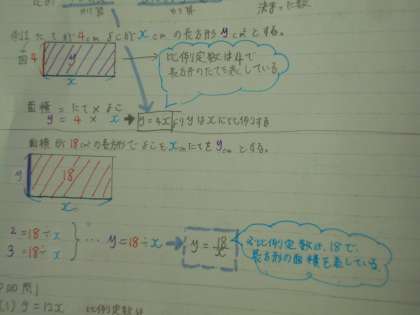 たてが4cm よこがxcmの長方形 ycm²とする。
図 4 y
x
比例定数は4で、
長方形のたてを表している
面積 = たて × よこ
y = 4 × x → y=4x よりyはxに比例する
面積が18cm²の長方形で よこをxcm たてをycm とする。
y 18
x
2 = 18÷x
3 = 18÷x
… y = 18÷x → y = 18/x
比例定数は、18で、
長方形の面積を表している。
(1) y = 12x 比例定数は